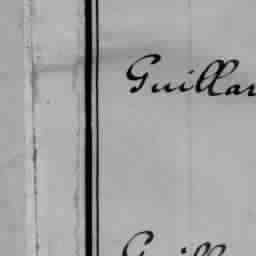 Guillar
Guill